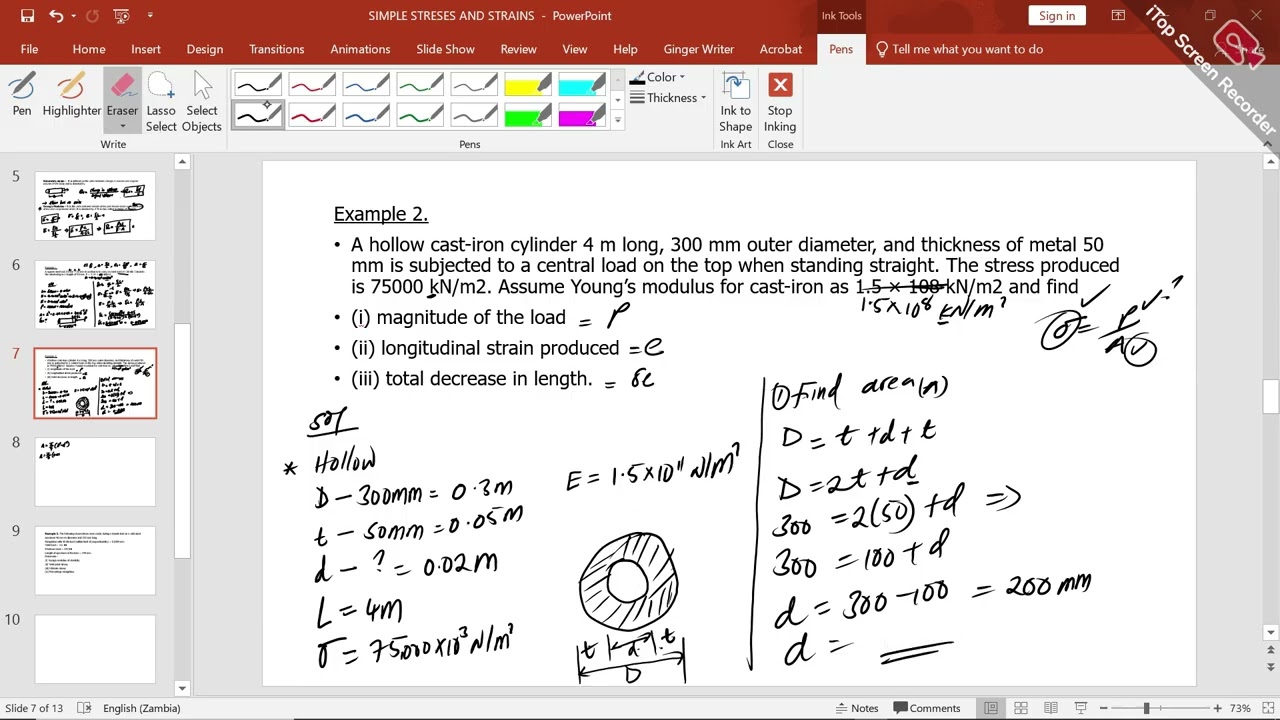 SIMPLE STRESES AND STRAINS - PowerPoint
Ink Tools
Sign in
iTop Screen Recorder
File Home Insert Design Transitions Animations Slide Show Review View Help Ginger Writer Acrobat Pens Tell me what you want to do
Pen Highlighter Eraser Lasso Select Select Objects
Color
Thickness
Ink to Shape
Stop Inking
Write
Pens
Ink Art
Close
5
6
7
8
9
10
Example 2.
• A hollow cast-iron cylinder 4 m long, 300 mm outer diameter, and thickness of metal 50
mm is subjected to a central load on the top when standing straight. The stress produced
is 75000 kN/m2. Assume Young's modulus for cast-iron as 1.5 × 108 kN/m2 and find
1.5×10⁸ kN/m²
• (i) magnitude of the load = P
• (ii) longitudinal strain produced = e
• (iii) total decrease in length. = δL
σ = P/A
?
Sol
* Hollow
D – 300mm = 0.3m
t – 50mm = 0.05m
d – ? = 0.02m
L = 4m
σ = 75000×10³ N/m²
E = 1.5×10¹¹ N/m²
t d t
D
① Find area (A)
D = t + d + t
D = 2t + d
300 = 2(50) + d ⇒
300 = 100 + d
d = 300 – 100 = 200mm
d =
Slide 7 of 13
English (Zambia)
Notes
Comments
73%